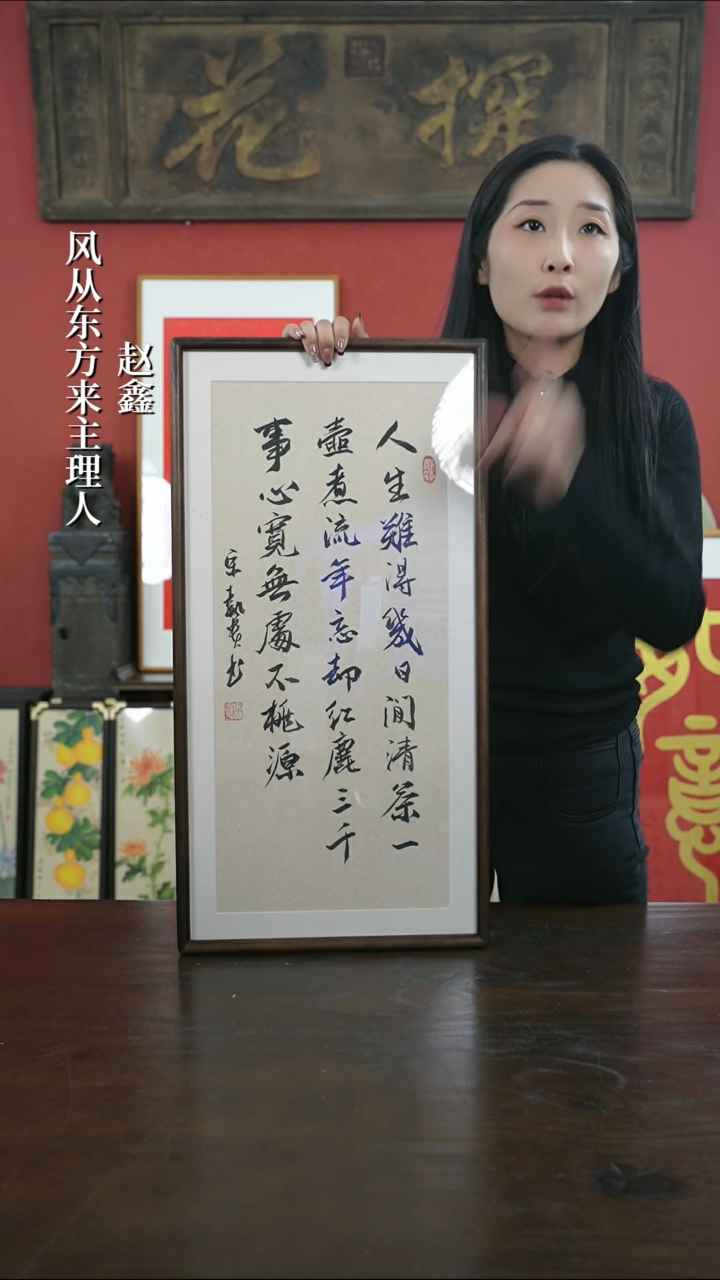 探花
风从东方来主理人
赵鑫
人生難得幾日閒清茶一
壺煮流年忘却紅塵三千
事心寬無處不桃源
意